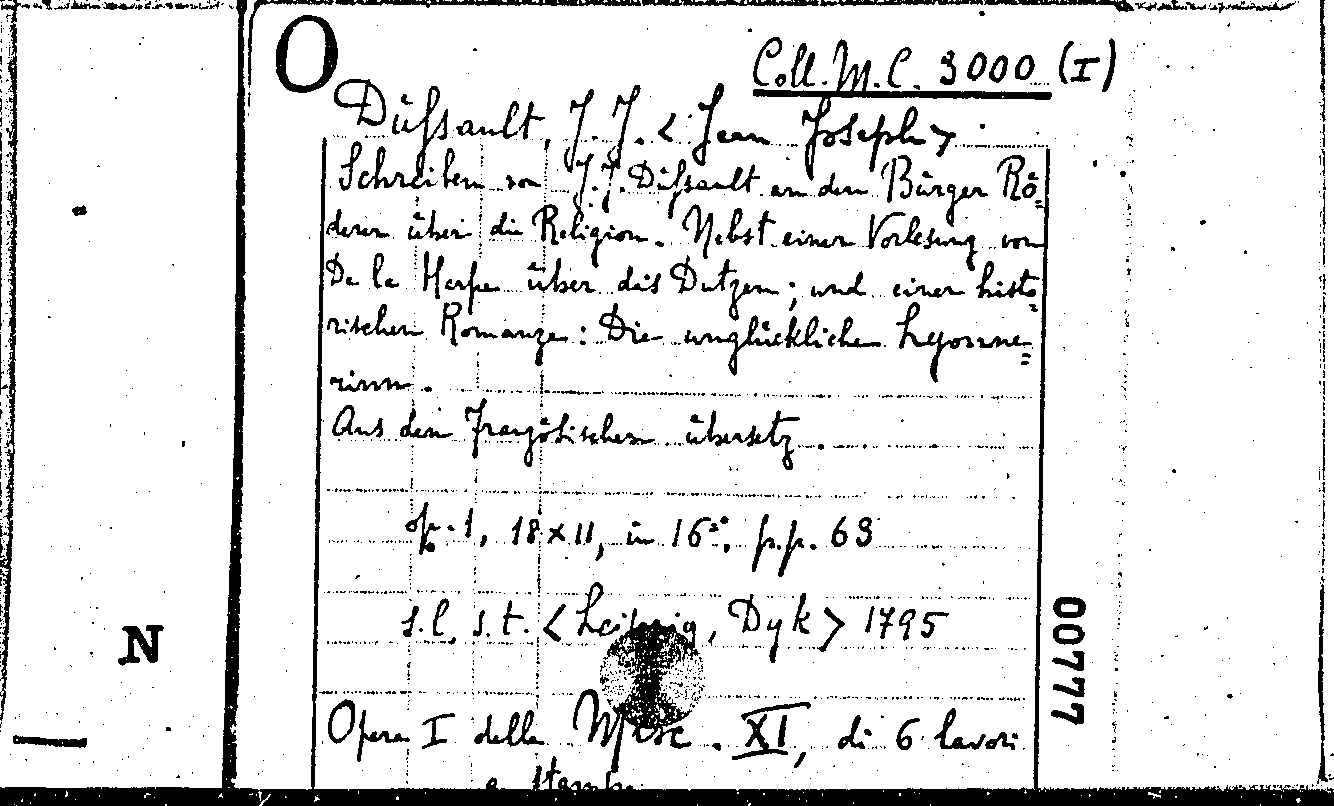 O
Coll. M. C. 3000 (I)
Dußault, J. J. < Jean Joseph >
Schreiben von J. J. Dußault an den Bürger Rö=
derer über die Religion. Nebst einer Vorlesung von
De la Harpe über das Dutzen; und einer histo=
rischen Romanze: Die unglücklichen Lyonne=
rinn.
Aus dem Französischen übersetz.
op. 1, 18 x 11, in 16°, p.p. 63
s.l. s.t. < Leipzig, Dyk > 1795
N
00777
Opera I della Misc. XI, di 6 lavori
a stampa